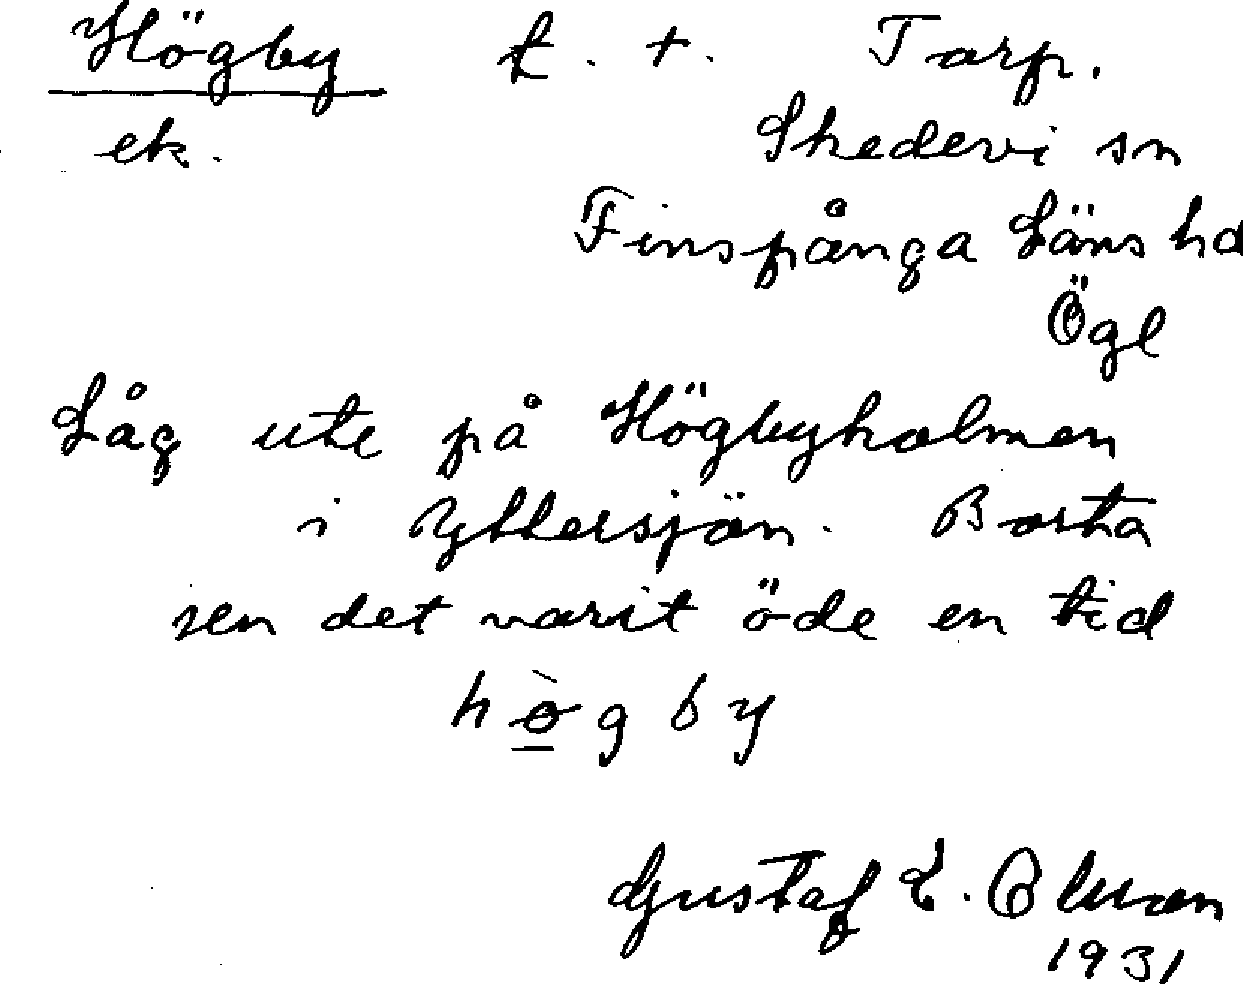 Högby f. t. Torp.
ek. Skedevi sn
Finspånga Läns hd
Ögl
Låg ute på Högbyholmen
i Yttersjön. Borta
sen det varit öde en tid
högby
Gustaf E.
1931